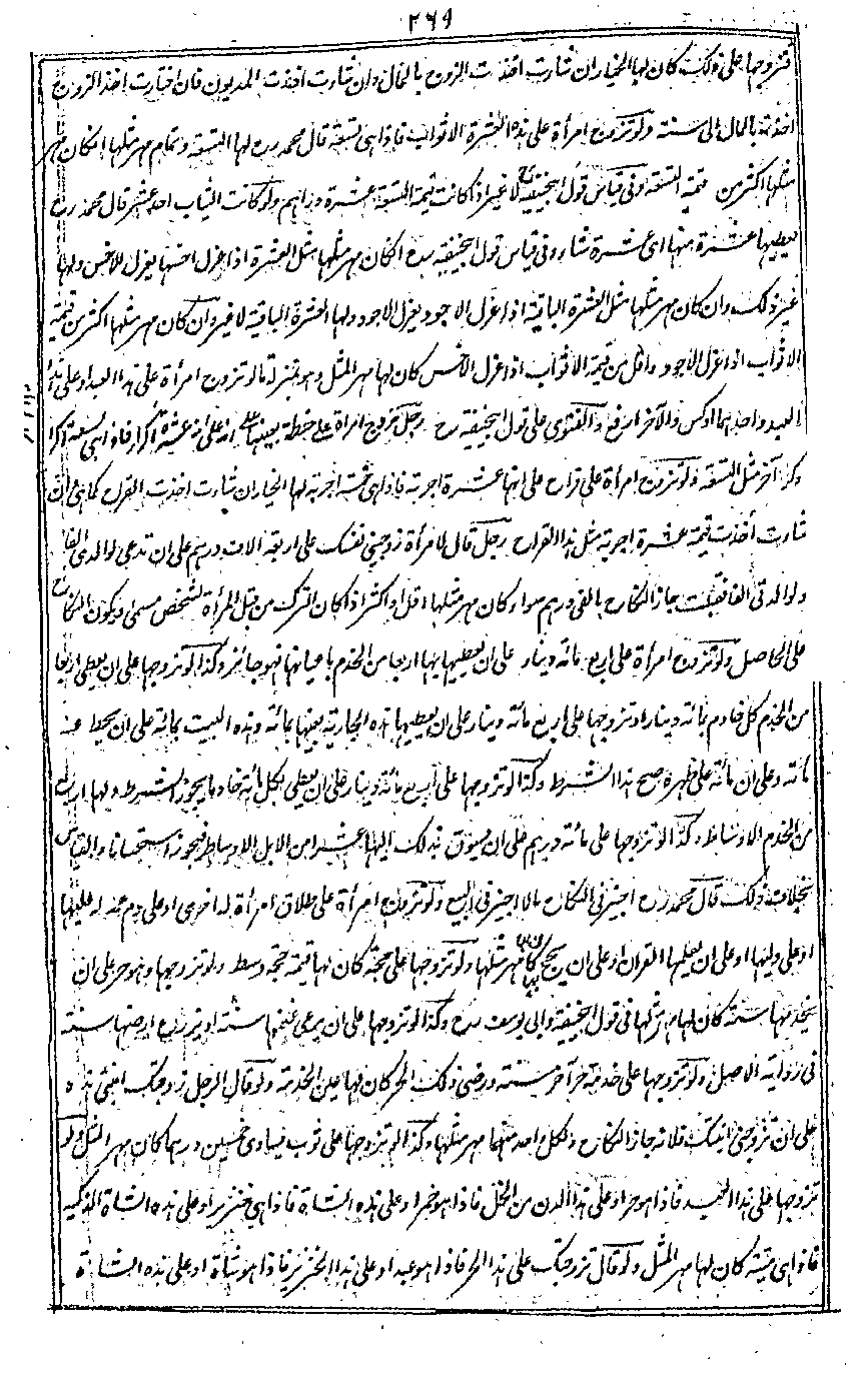 ٢٦٩
فتزوجها على ذلك كان لها الخيار ان شاءت اخذت الزوج بالمال وان شاءت اخذت المديون فان اختارت اخذ الزوج
اخذته بالمال الى سنة ولو تزوج امرأة على هذه العشرة الاثواب فاذا هى تسعة قال محمد رح لها التسعة وتمام مهر مثلها ان كان مهر
مثلها اكثر من قيمة التسعة وفى قياس قول ابيحنيفة رح لا غير اذا كانت قيمة التسعة عشرة دراهم ولو كانت الثياب احد عشر قال محمد رح
يعطيها عشرة منها اى عشرة شاء وفى قياس قول ابيحنيفة رح ان كان مهر مثلها مثل العشرة اذا عزل اخسها يعزل الاخس ولها
غير ذلك وان كان مهر مثلها مثل العشرة الباقية اذا عزل الاجود يعزل الاجود ولها العشرة الباقية لا غير وان كان مهر مثلها اكثر من قيمة
الاثواب اذا عزل الاجود واقل من قيمة الاثواب اذا عزل الاخس كان لها مهر المثل وهو بمنزلة ما لو تزوج امرأة على هذا العبد او على هذا
العبد واحدهما اوكس والآخر ارفع والفتوى على قول ابيحنيفة رح رجل تزوج امرأة على حنطة بعينها على انه عشرة اكرار فاذا هى تسعة اكرا
وكر آخر مثل التسعة ولو تزوج امرأة على قراح على انها عشرة اجربة فاذا هى خمسة اجربة لها الخيار ان شاءت اخذت القراح كما هى وان
شاءت أخذت قيمة عشرة اجربة مثل هذا القراح رجل قال لامرأة زوجينى نفسك على اربعة الاف درهم على ان تدعى لوالدى الفا
ولوالدتى الفا فقبلت جاز النكاح بالفى درهم سواء كان مهر مثلها اقل او اكثر اذا كان الترك من قبل المرأة لشخص مسمى ويكون النكاح
على الحاصل ولو تزوج امرأة على اربع مائة دينار على ان يعطيها بها اربعا من الخدم باعيانها فهو جائز وكذا لو تزوجها على ان يعطى اربعا
من الخدم كل خادم بمائة دينار او تزوجها على اربع مائة دينار على ان يعطيها هذه الجارية بعينها بمائة وهذه البيت بمائة على ان يحط عنه
مائة وعلى ان مائة على ظهره صح هذا الشرط وكذا لو تزوجها على أربع مائة دينار على ان يعطى بكل مائة خادما يجوز الشرط ولها اربع
من الخدم الاوساط وكذا لو تزوجها على مائة درهم على ان يسوق بذلك اليها عشرا من الابل الاوساط فيجوز استحسانا والقياس
بخلاف ذلك قال محمد رح اجيز فى النكاح ما لا اجيز فى البيع ولو تزوج امرأة على طلاق امرأة له اخرى او على دم عمد له عليها
او على وليها او على ان يعلمها القران او على ان يحج بها كان لها مهر مثلها ولو تزوجها على حجة كان لها قيمة حجة وسط ولو تزوجها وهو حر على ان
يخدمها سنة كان لها مهر مثلها فى قول ابيحنيفة وابى يوسف رح وكذا لو تزوجها على ان يرعى غنمها سنة او يزرع ارضها سنة
فى رواية الاصل ولو تزوجها على خدمة حر آخر سنة ورضى ذلك الحر كان لها عين الخدمة ولو قال الرجل زوجتك ابنتى هذه
على ان تزوجنى ابنتك فلانة جاز النكاح ولكل واحدة منهما مهر مثلها وكذا لو تزوجها على ثوب يساوى خمسين درهما كان مهر المثل ولو
تزوجها على هذا العبد فاذا هو حر او على هذا الدن من الخل فاذا هو خمر او على هذه الشاة فاذا هى خنزير او على هذه الشاة الذكية
فاذا هى ميتة كان لها مهر المثل ولو قال تزوجتك على هذا الحر فاذا هو عبد او على هذا الخنزير فاذا هو شاة او على هذه الشاة